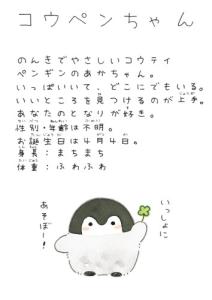 コウペンちゃん
のんきでやさしいコウテイ
ペンギンのあかちゃん。
いっぱいいて、どこにでもいる。
いいところを見つけるのが上手。
あなたのとなりが好き。
性別・年齢は不明。
お誕生日は4月4日。
身長：まちまち
体重：ふわふわ
いっしょに
あそぼー！